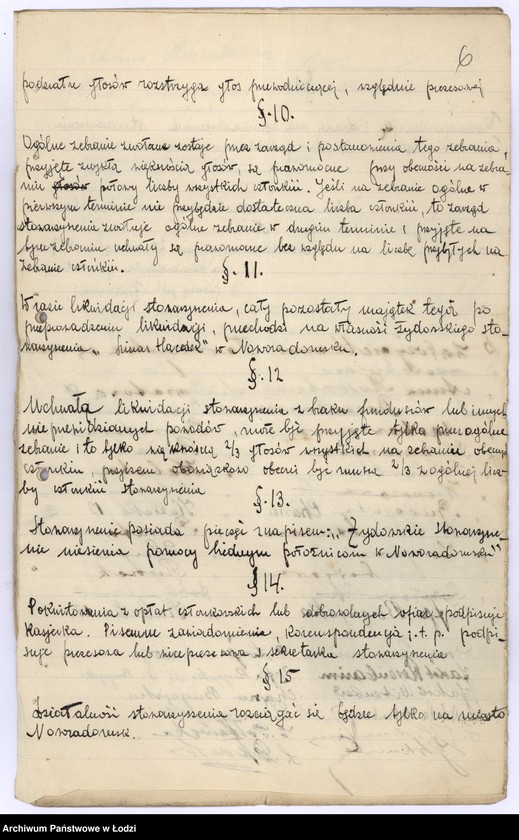 6
podziału głosów rozstrzyga głos przewodniczącej, względnie prezesowej
§. 10.
Ogólne zebranie zwołane zostaje przez zarząd i postanowienia tego zebrania,
przyjęte zwykłą większością głosów, są prawomocne przy obecności na zebra-
niu głosów połowy liczby wszystkich członkiń. Jeśli na zebranie ogólne w
pierwszym terminie nie przybędzie dostateczna liczba członkiń, to zarząd
stowarzyszenia zwołuje ogólne zebranie w drugim terminie i przyjęte na
tym zebraniu uchwały są prawomocne bez względu na liczbę przybyłych na
zebranie członkiń.
§. 11.
W razie likwidacji stowarzyszenia, cały pozostały majątek tegoż po
przeprowadzeniu likwidacji, przechodzi na własność Żydowskiego sto-
warzyszenia „ Linas Hacedek" w Noworadomsku.
§. 12
Uchwała likwidacji stowarzyszenia z braku funduszów lub innych
nieprzewidzianych powodów, może być przyjęta tylko przez ogólne
zebranie i to tylko większością 2/3 głosów wszystkich na zebraniu obecnych
członkiń, przyczem obowiązkowo obecni być muszą 2/3 z ogólnej licz-
by członkiń stowarzyszenia
§. 13.
Stowarzyszenie posiada pieczęć z napisem: „ Żydowskie stowarzysze-
nie niesienia pomocy biednym położnicom w Noworadomsku"
§ 14.
Pokwitowania z opłat członkowskich lub dobrowolnych ofiar podpisuje
kasjerka. Pisemne zawiadomienia, korespondencja i. t. p. podpi-
suje prezesowa lub viceprezesowa i sekretarka stowarzyszenia
§ 15
Działalność stowarzyszenia rozciągać się będzie tylko na miasto
Noworadomsk.
Archiwum Państwowe w Łodzi